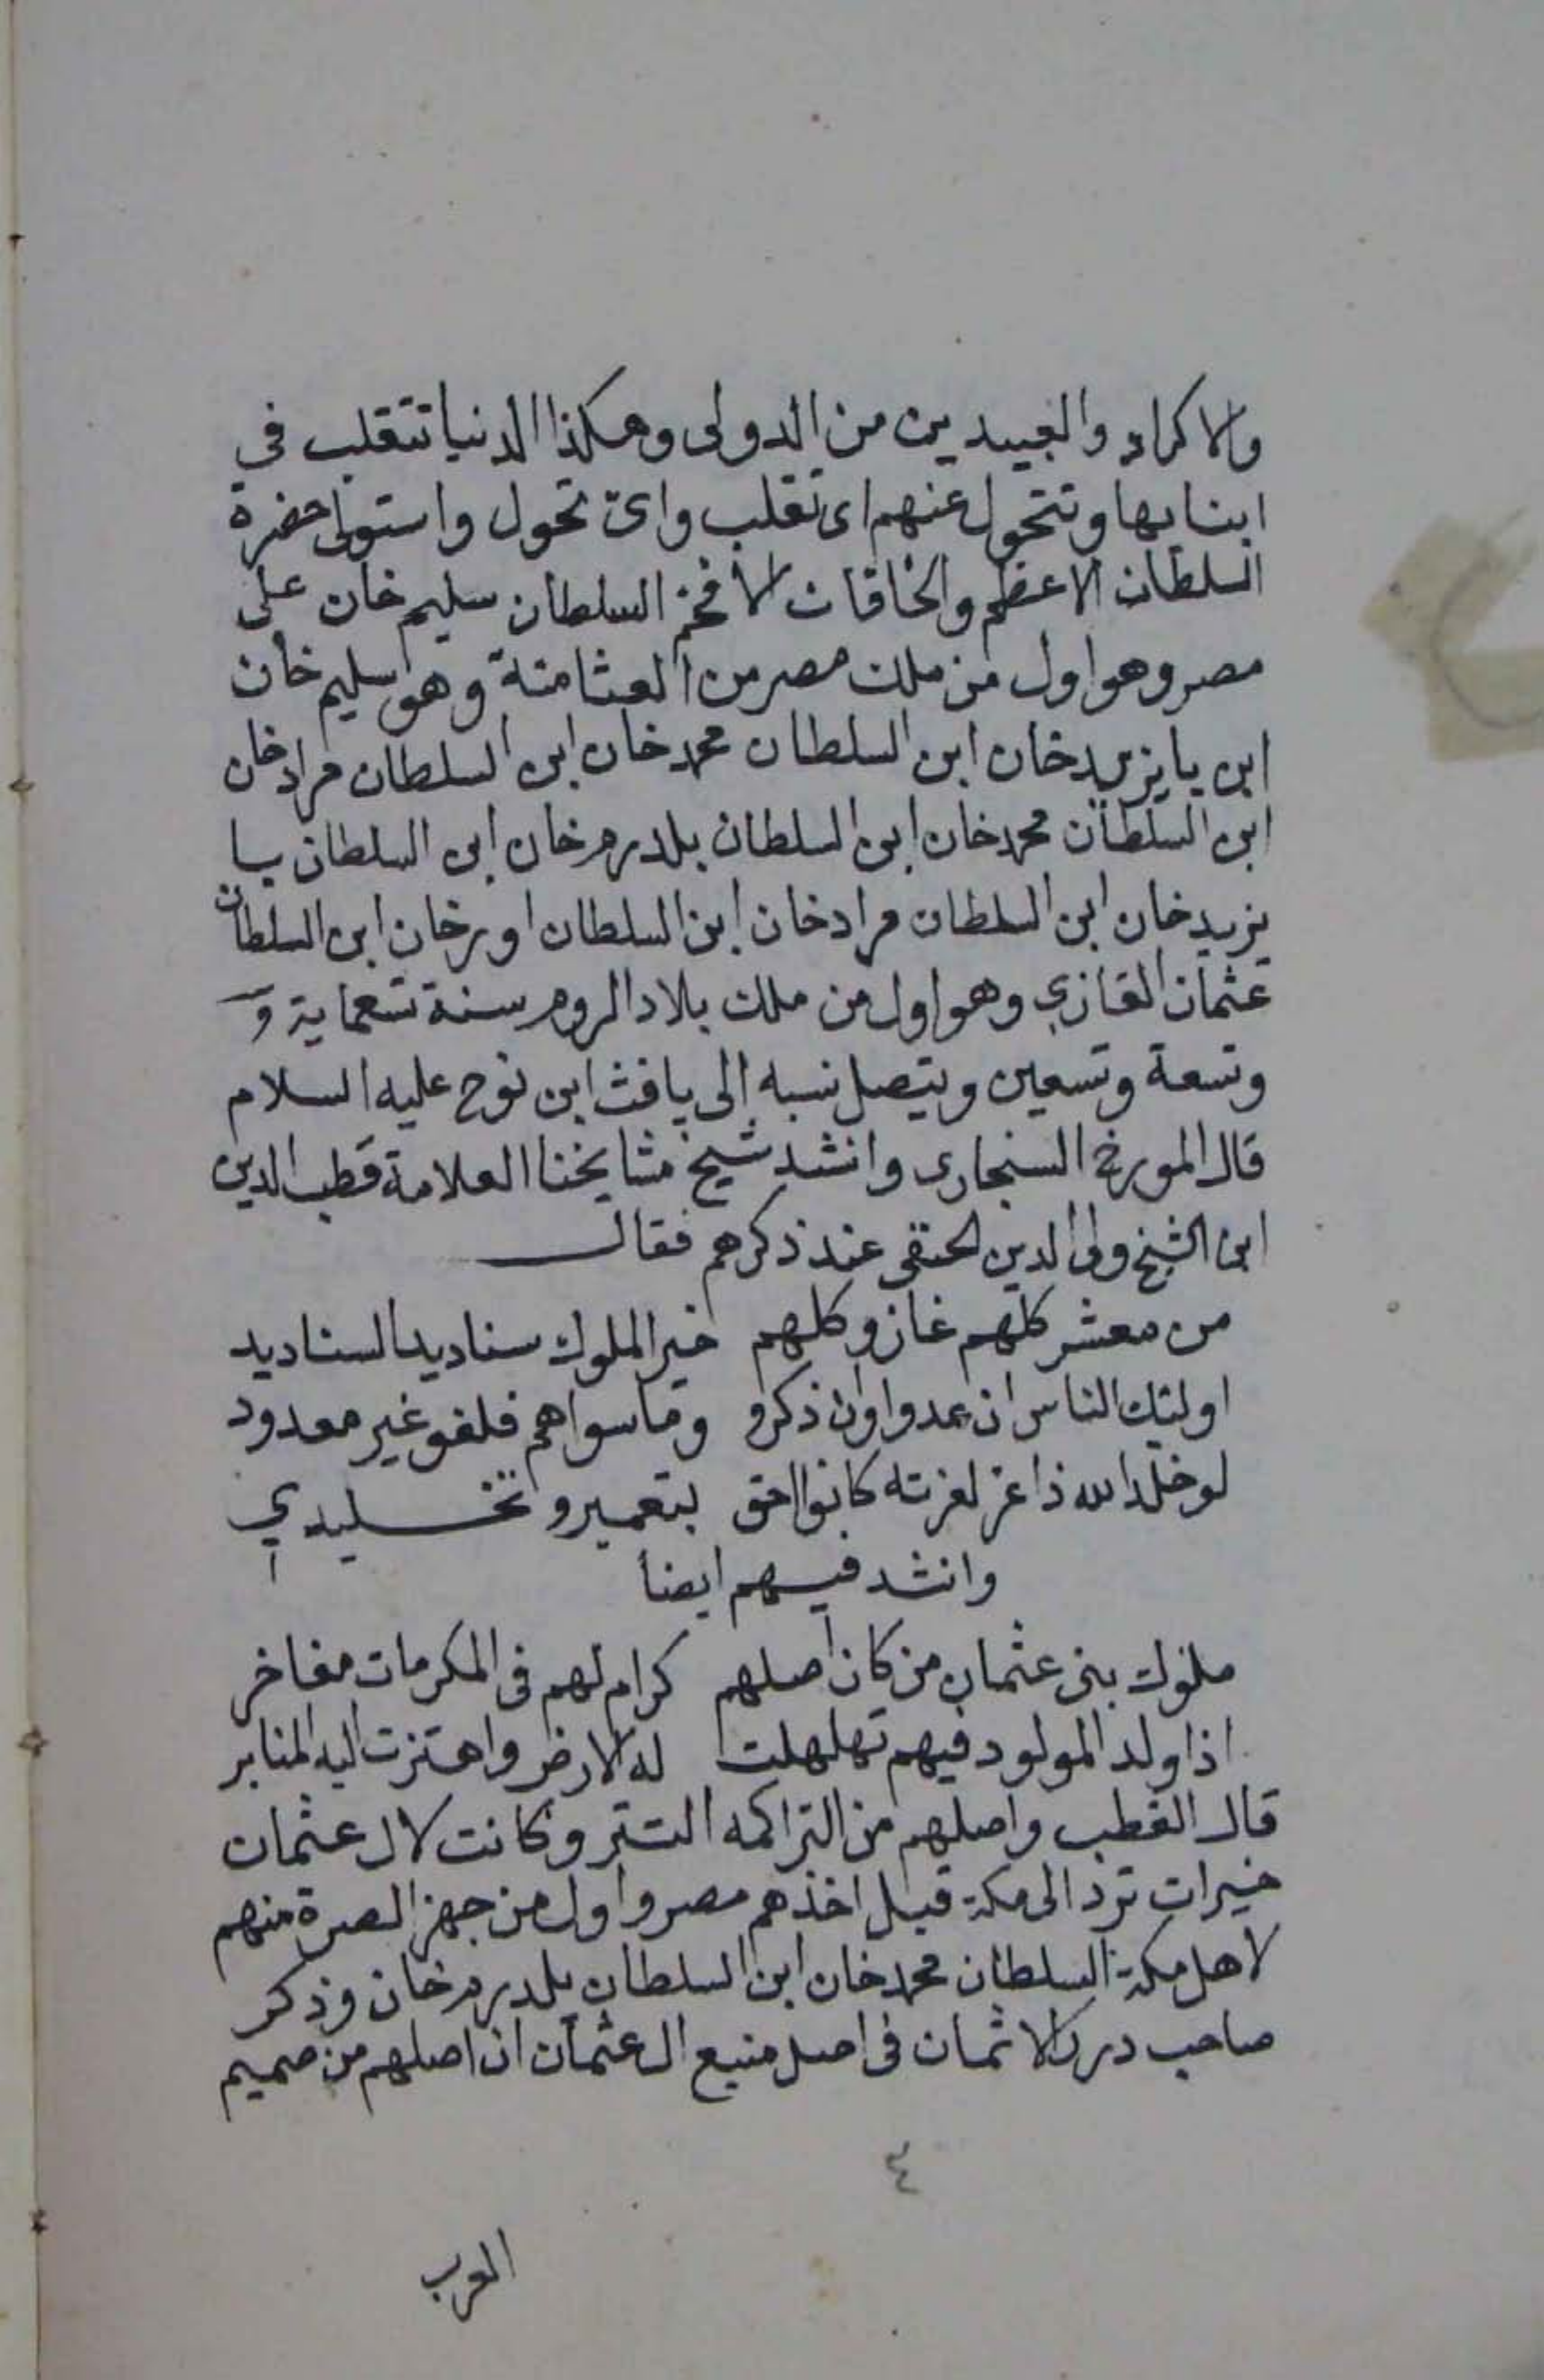 والاكراد والعبيديين من الدولى وهكذا الدنيا تتقلب في
ابنايها وتتحول عنهم اى تقلب واىّ تحول واستولى حضرة
السلطان الاعظم والخاقان الافخم السلطان سليم خان على
مصر وهو اول من ملك مصر من العثامنة وهو سليم خان
ابن بايزيد خان ابن السلطان محمد خان ابن السلطان مراد خان
ابن السلطان محمد خان ابن السلطان يلدرم خان ابن السلطان با
يزيد خان ابن السلطان مراد خان ابن السلطان اورخان ابن السلطان
عثمان الغازي وهو اول من ملك بلاد الروم سنة تسعماية و
وتسعة وتسعين ويتصل نسبه إلى يافث ابن نوح عليه السلام
قال المورخ السنجارى وانشد شيخ مشايخنا العلامة قطب الدين
ابن الشيخ ولى الدين الحنقى عند ذكرهم فقال
من معشر كلهم غاز وكلهم خير الملوك سناديد السناديد
اوليئك الناس ان عدوا وان ذكرو وماسواهم فلغو غير معدود
لو خلد الله ذا عز لعزته كانوا احق بتعمير وتخليدي
وانشد فيهم ايضا
ملوك بنى عثمان من كان اصلهم كرام لهم فى المكرمات مفاخر
اذا ولد المولود فيهم تهلهلت له الارض واهتزت اليه المنابر
قال القطب واصلهم من التراكمه التتر وكانت لال عثمان
خيرات ترد الى مكة قبل اخذهم مصر واول من جهز الصرة منهم
لاهل مكة السلطان محمد خان ابن السلطان يلدرم خان وذكر
صاحب درر الاثمان فى اصل منبع ال عثمان ان اصلهم من صميم
٤
العرب